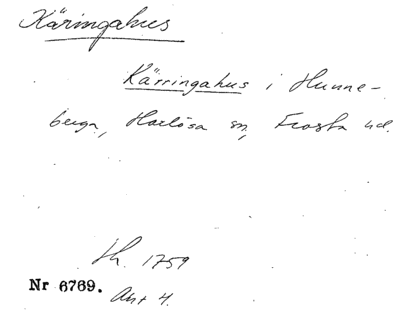 Käringahus
Kärringahus i Hunne-
berga, Harlösa sn, Frosta hd.
Th. 1759
Nr 6769.
Akt 4.